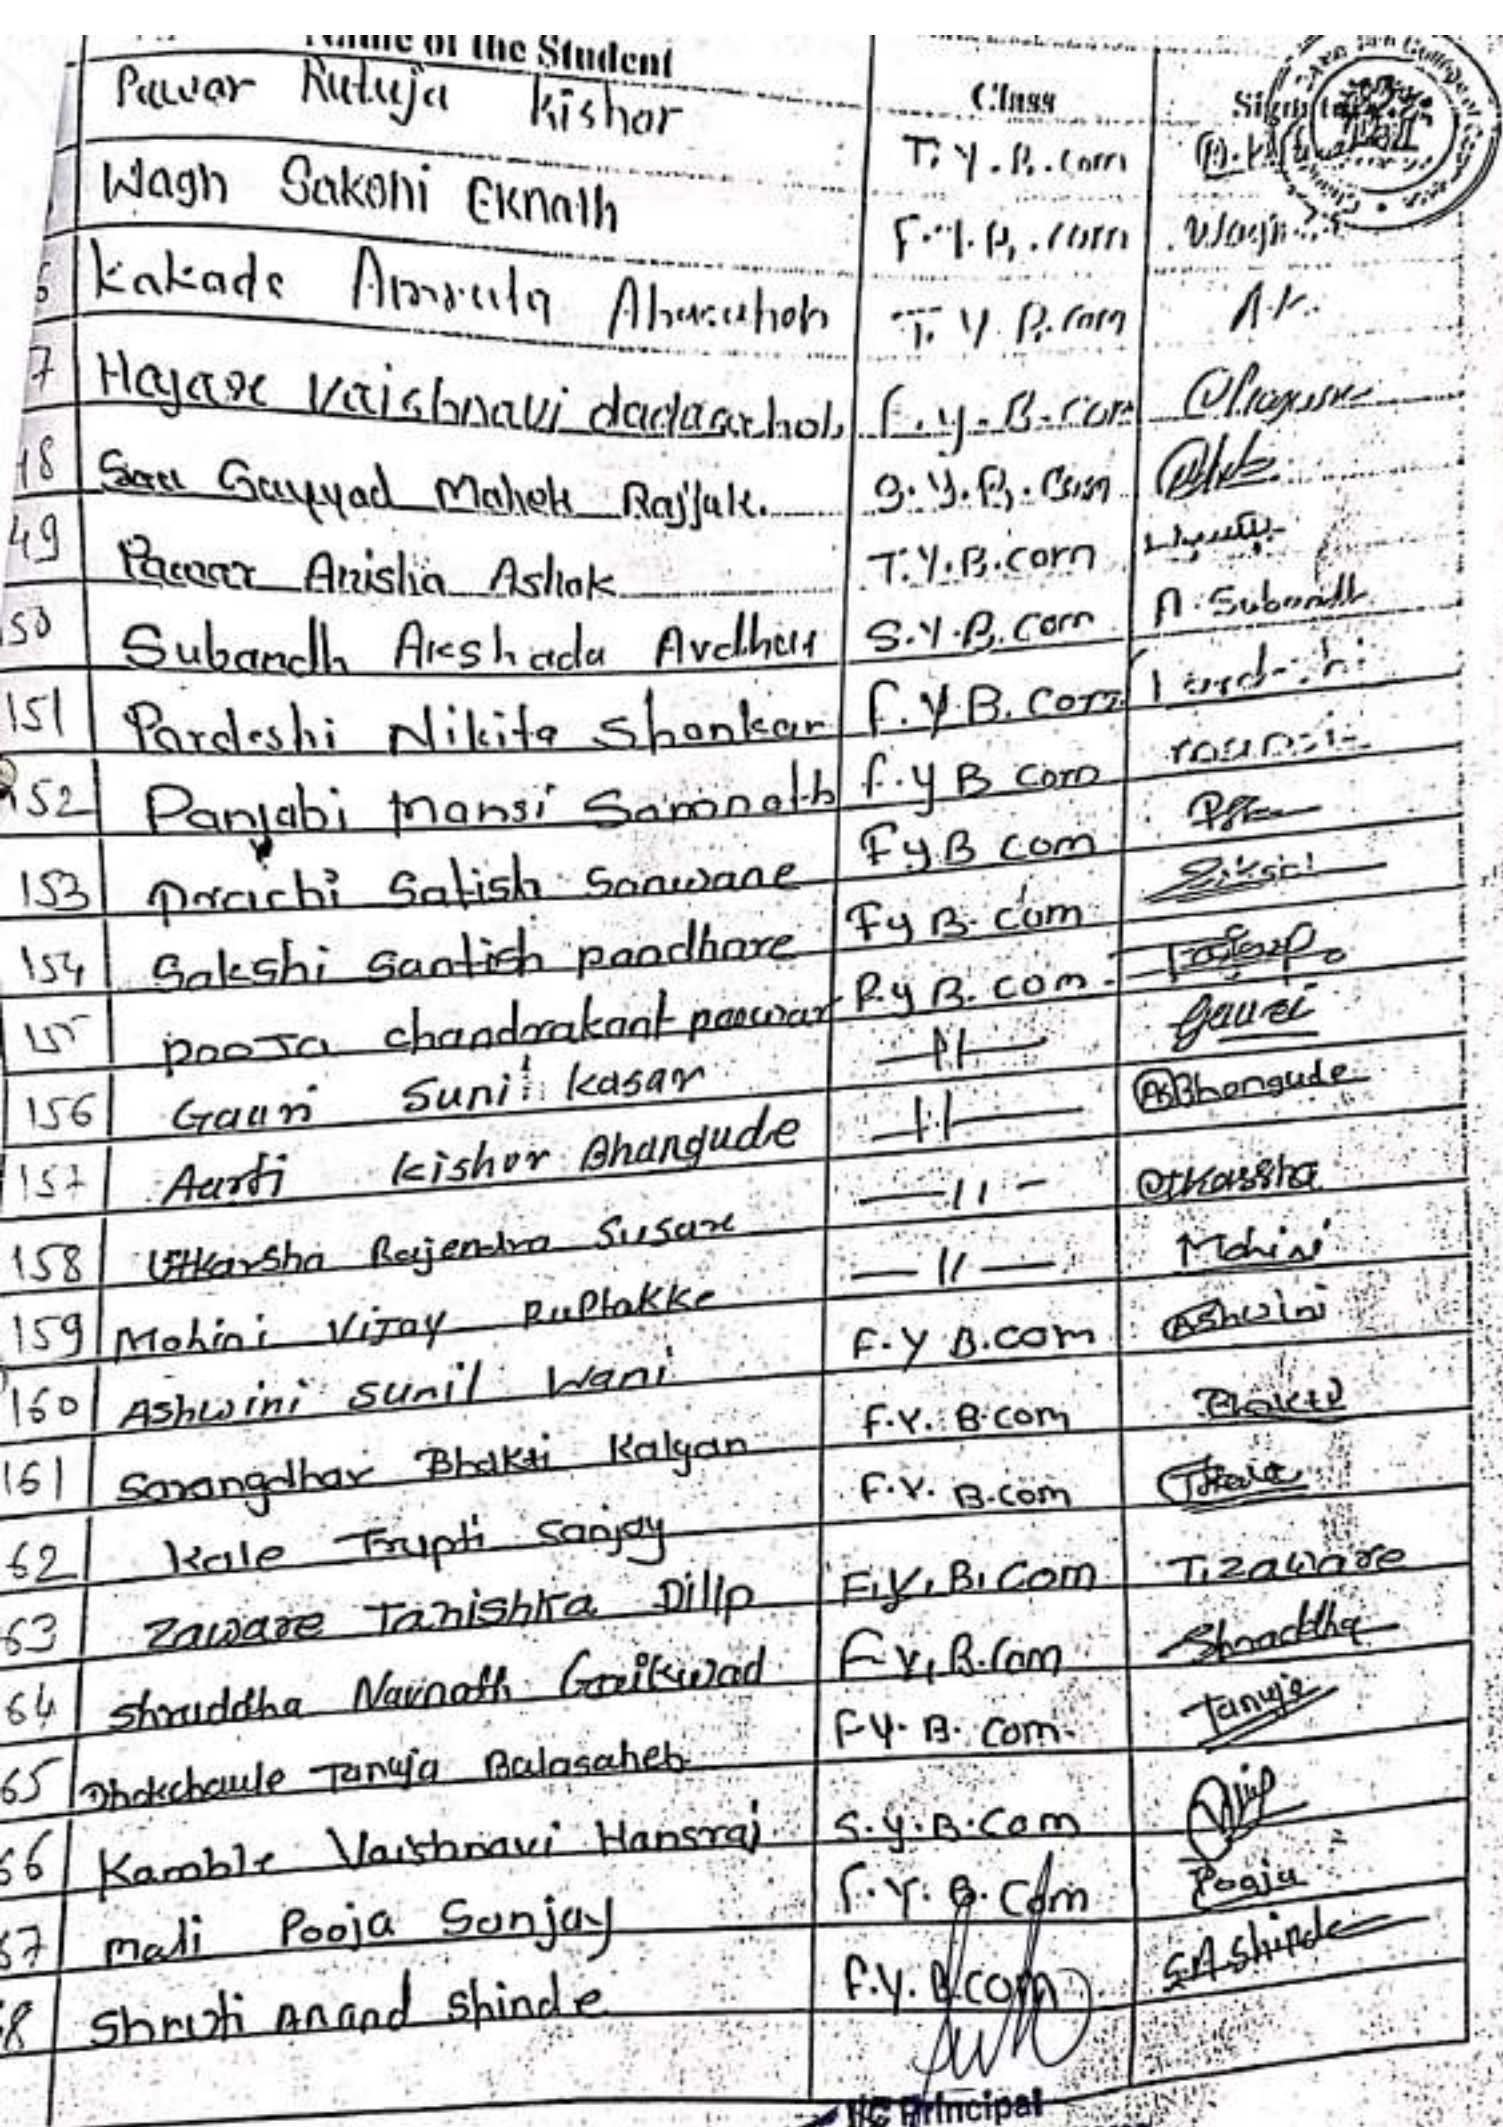 Name of the Student Class
Pawar Rutuja Kishor T.Y.B.com
Wagh Sakshi Eknath F.Y.B.com Wagh
Kakade Amruta T.Y.B.com A.K.
7 Hajare Vaishnavi dadasaheb F.y.B.com
48 Sayyad Mahek Rajjak. S.Y.B.Com
49 Pawar Anisha Ashok T.Y.B.com
150 Subandh Akshada Avdhut S.Y.B.com A.Subandh
151 Pardeshi Nikita Shankar F.Y.B.Com
152 Panjabi Mansi Somnath F.y B com
153 Prachi Satish Sonwane Fy.B com
154 Sakshi Santish pandhare Fy B. com
155 pooja chandrakant pawar F.y B. com.
156 Gauri Sunil kasar —11— Gauri
157 Aarti Kishor Bhangude —11— Bhangude
158 Utkarsha Rajendra Susare —11— Utkarsha
159 Mohini Vijay —11— Mohini
160 Ashwini Sunil Wani F.Y B.COM Ashwini
161 Sarangdhar Bhakti Kalyan F.Y. B.com Bhakti
62 Kale Trupti Sanjay F.Y. B.com
63 Zaware Tanishka Dilip F.Y.B.Com T.Zaware
64 Shraddha Navnath Gaikwad F.Y.B.Com Shraddha
65 Dhokchaule Tanuja Balasaheb F.Y. B. Com. Tanuja
66 Kamble Vaishnavi Hansraj S.Y.B.Com
67 Mali Pooja Sanjay F.Y.B.Com Pooja
68 Shruti Anand Shinde F.Y.B.com S.A.Shinde
I/C Principal